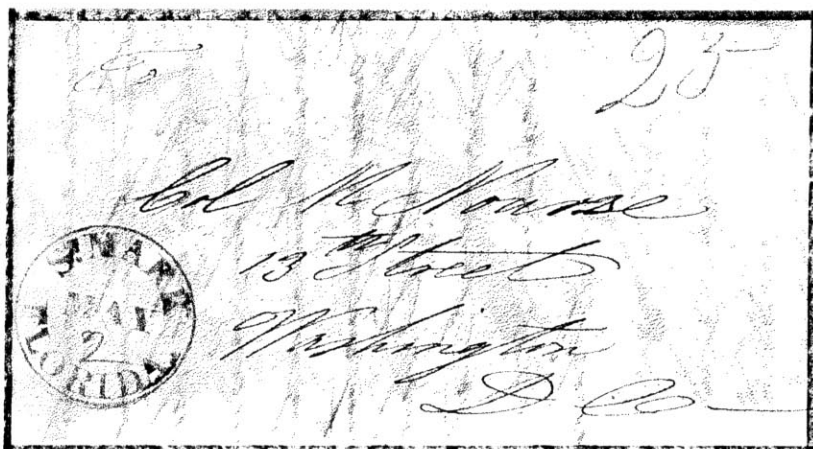 25
Col M. Nourse
13th Street
Washington
D Co
S. MARK
MAY
2
FLORIDA.